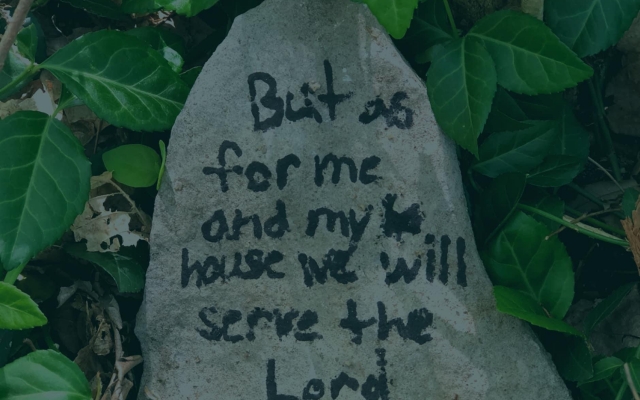 But as
for me
and my
house we will
serve the
Lord